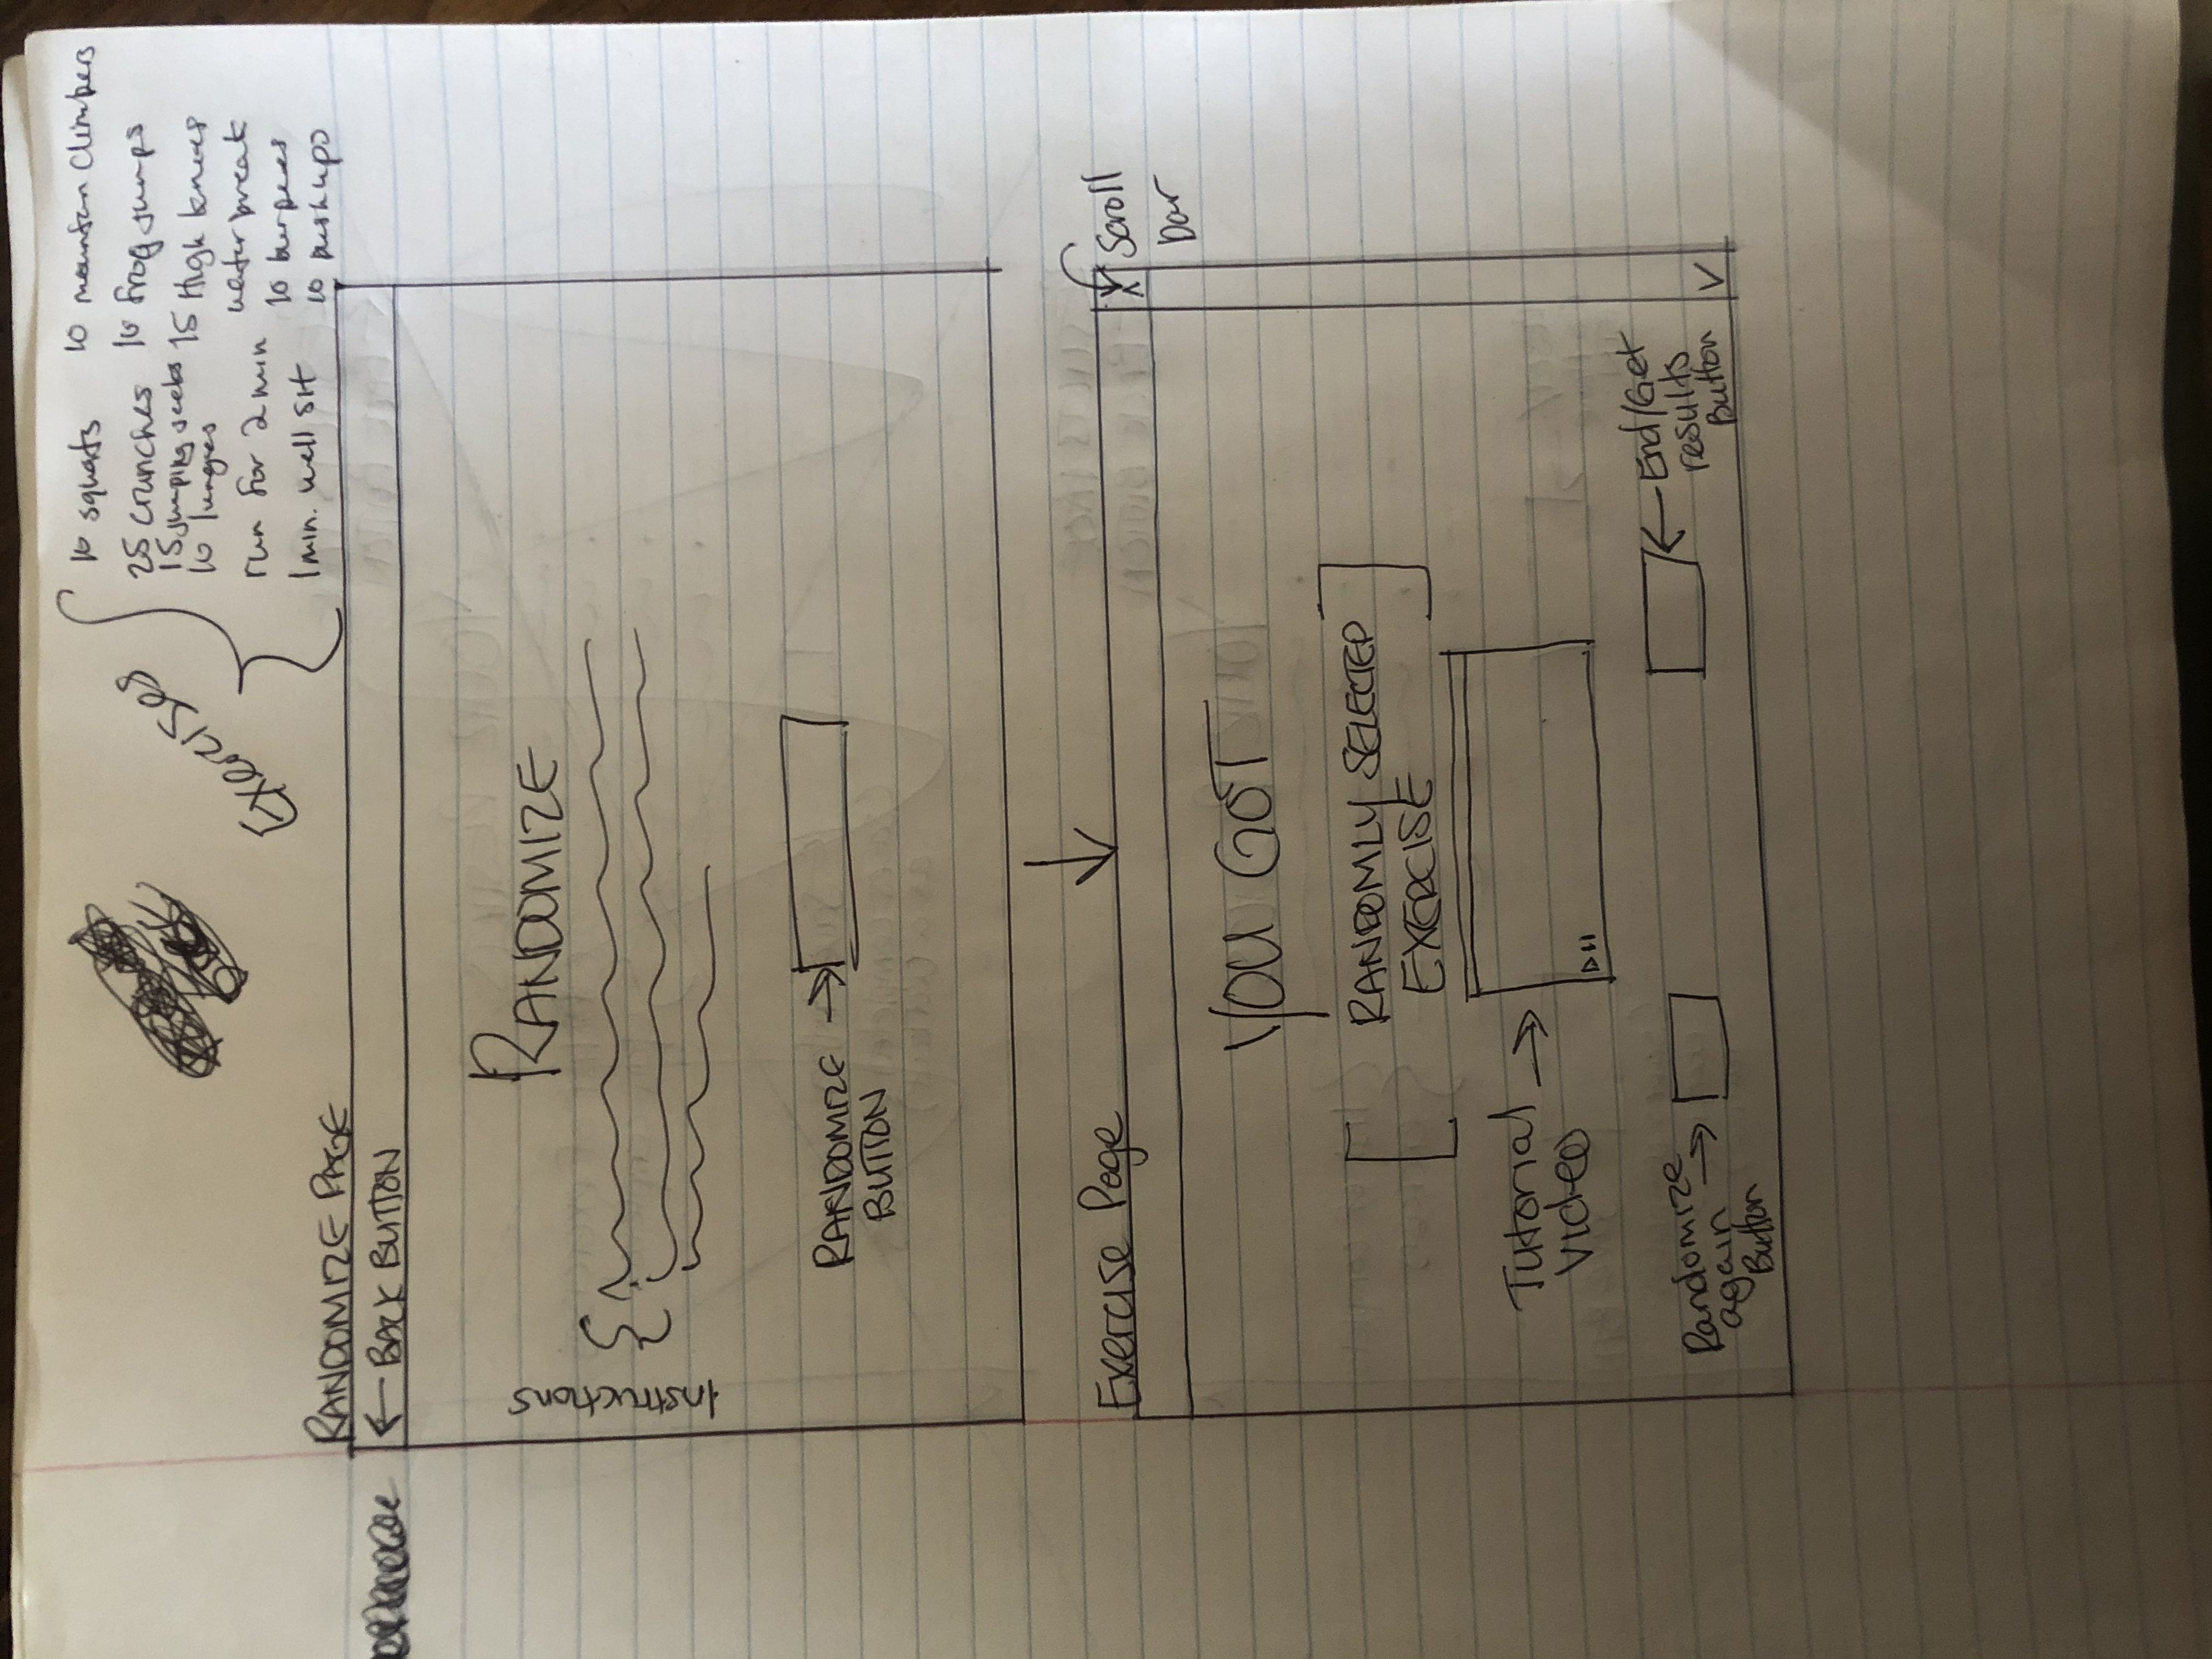 Exercises
10 squats
25 crunches
15 jumping jacks
10 lunges
run for 2 min
1 min. wall sit
10 mountain climbers
10 frog jumps
15 High knees
water break
10 burpees
10 push ups
RANDOMIZE PAGE
← BACK BUTTON
RANDOMIZE
Instructions
RANDOMIZE →
BUTTON
Exercise Page
Scroll
bar
YOU GOT
[ RANDOMLY SELECTED
EXERCISE ]
Tutorial →
Video
Randomize →
again
Button
← End/Get
results
Button